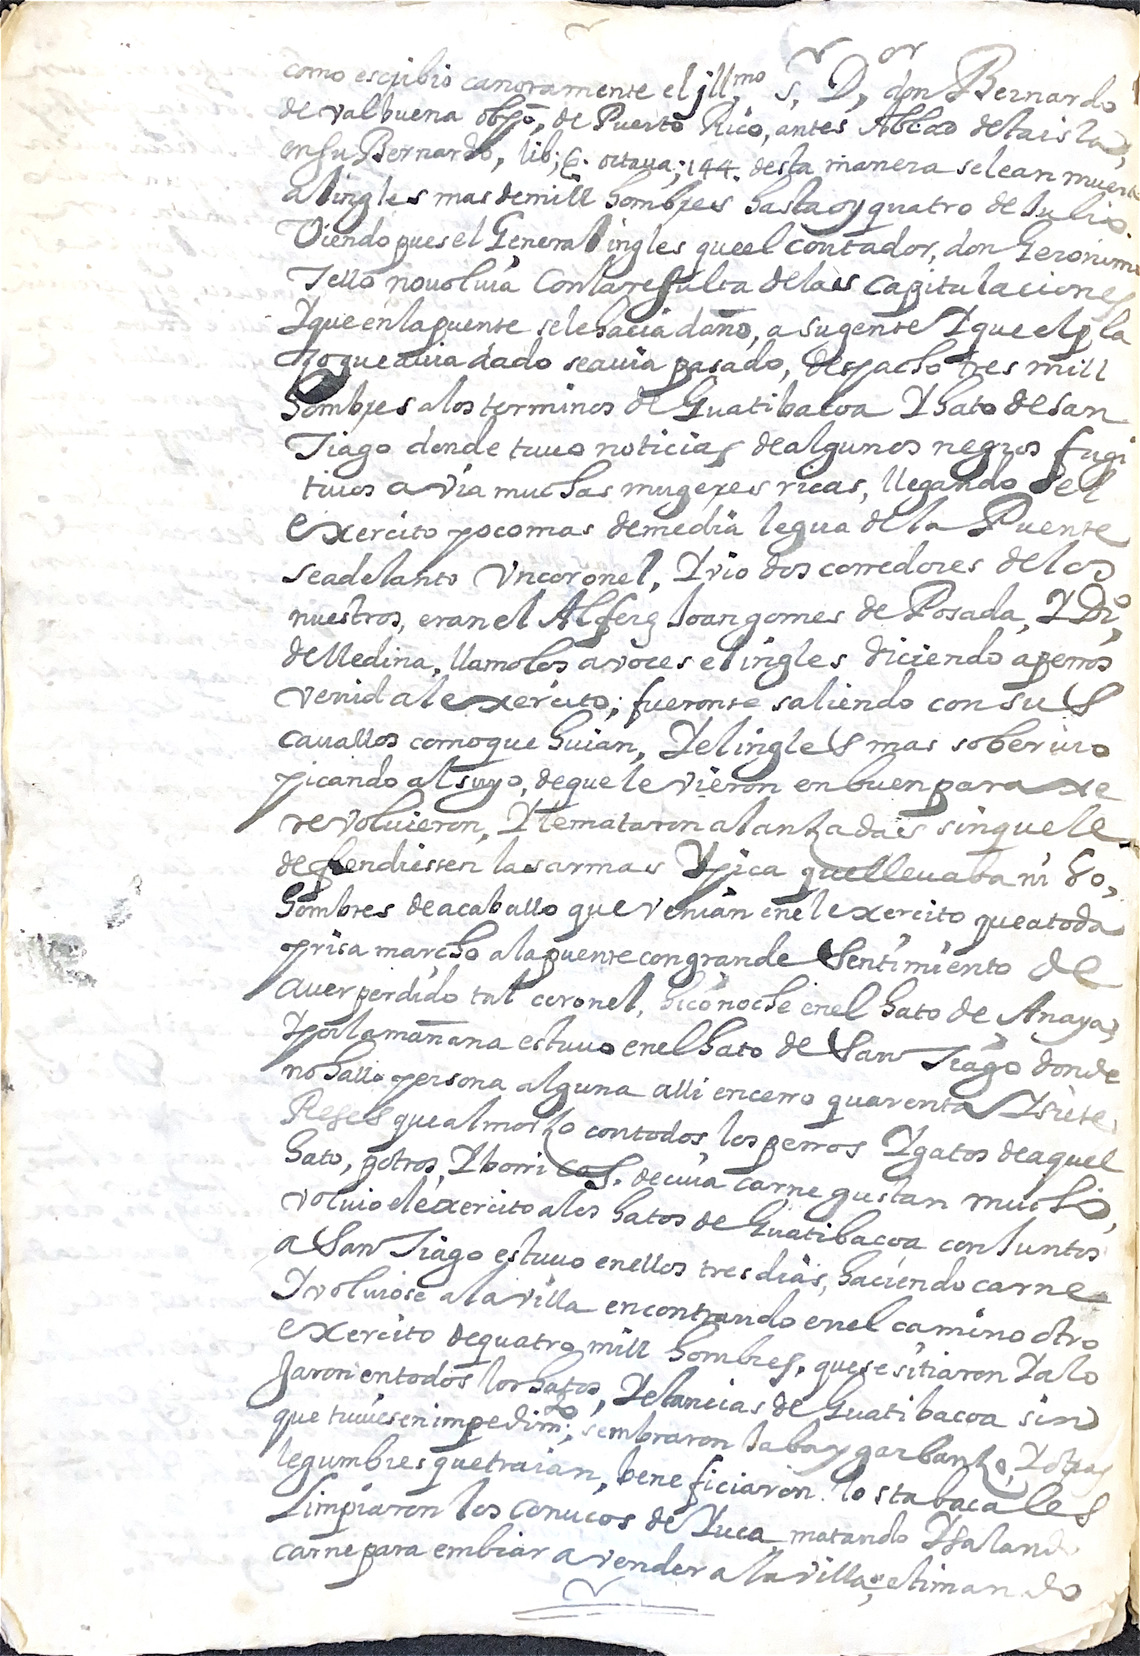 como escribio canoramente el jll,mo s,r D,or don Bernardo
de valbuena obpõ, de Puerto Rico, antes Abbad de la isla,
en su Bernardo, lib; 6. octaua; 144. desta manera se le an muerto
al ingles mas de mill hombres hasta oy quatro de Julio.
Viendo pues el General ingles que el contador, don Geronimo
Tello no voluia con la resulta de las capitulaciones
Y que en la puente se le hacia daño, a su gente Y que el pla
zo que auia dado se auia pasado, despacho tres mill
hombres a los terminos de Guatibacoa Y hato de san
Tiago donde tuuo noticias de algunos negros fugi
tiuos avia muchas mugeres ricas, llegando del
exercito poco mas de media legua de la Puente
se adelanto vn coronel, Y vio dos corredores de los
nuestros, eran el Alferez Joan gomes de Posada, Y Di,o
de Medina, llamolos a voces el ingles diciendo a perros
venid al exercito; fueronse saliendo con sus
cauallos como que huian, Y el ingles mas soberuio
picando al suyo, de que le vieron en buen paraxe
revoluieron, Y le mataron a lanzadas sin que le
defendiessen las armas Y pica que lleuaba ni 80,
hombres de a caballo que venian en el exercito que a toda
prisa marcho a la puente con grande sentimiento de
auer perdido tal coronel, hico noche en el hato de Anaya,
Y por la mañana estuuo en el hato de San Tiago donde
no hallo persona alguna alli encerro quarenta Y siete
Reses que almorzo con todos los perros Y gatos de aquel
hato, potros, Y borricas. de cuia carne gustan mucho,
voluio el exercito a los hatos de Guatibacoa con Juntos
a San Tiago estuuo en ellos tres dias, haciendo carne
Y voluiose a la villa encontrando en el camino otro
exercito de quatro mill hombres, que se sitiaron Y alo
jaron en todos los hatos, Y estancias de Guatibacoa sin
que tuuiesen impedim;to sembraron habas y garbanzo, Y otras
legumbres que traian, beneficiaron. los tabacales
Limpiaron los conucos de Yuca matando Y salando
carne para embiar a vender a la villa, estimando